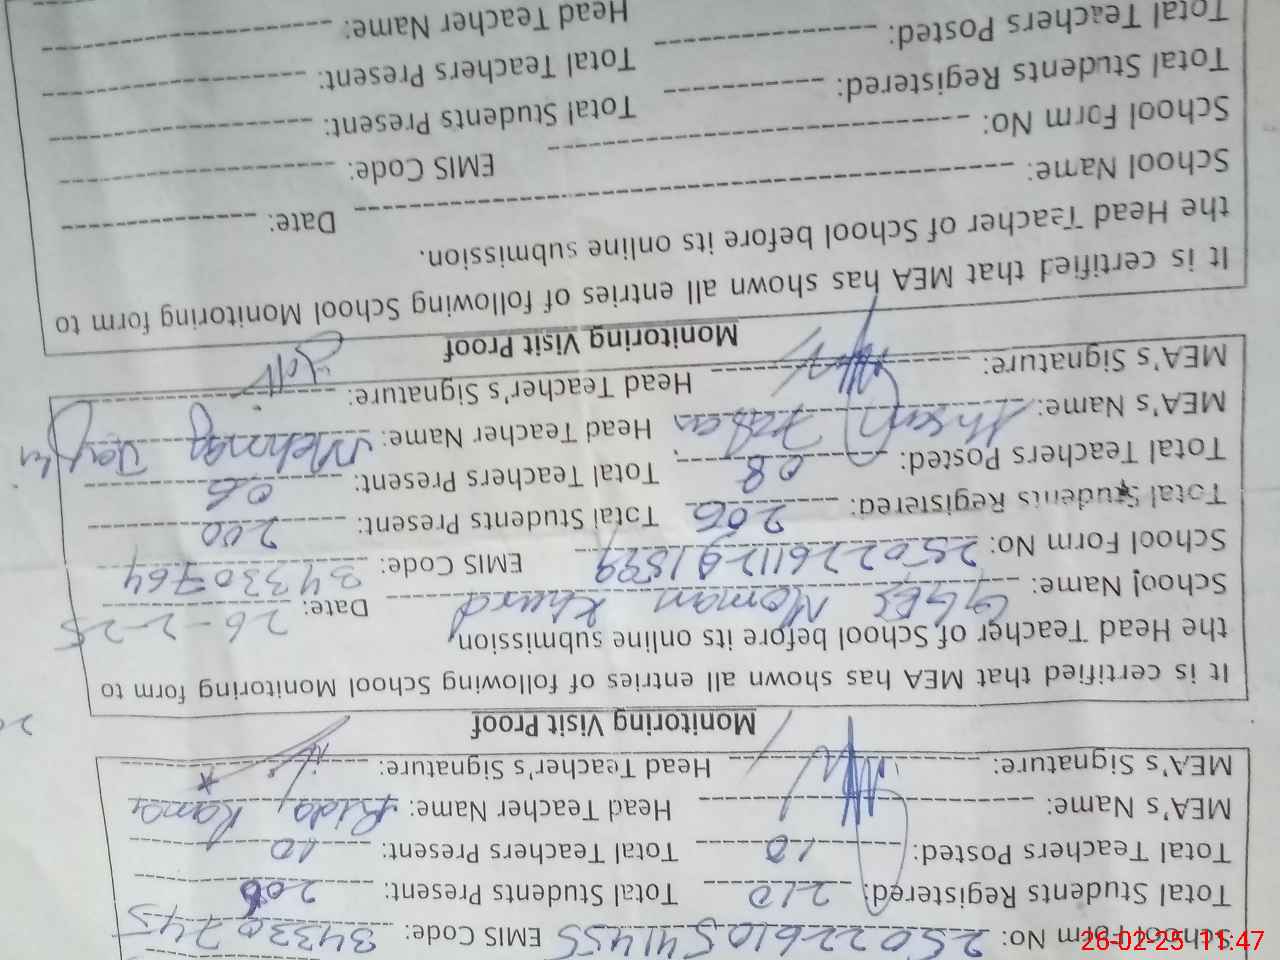 School Form No: 25022610541455 EMIS Code: 34330745
Total Students Registered: 210 Total Students Present: 206
Total Teachers Posted: 10 Total Teachers Present: 10
MEA's Name: Head Teacher Name: Rida
MEA's Signature: Head Teacher's Signature:
Monitoring Visit Proof
It is certified that MEA has shown all entries of following School Monitoring form to
the Head Teacher of School before its online submission
School Name: GGES Moman Khurd Date: 26-2-25
School Form No: EMIS Code: 34330764
Total Students Registered: 206 Total Students Present: 200
Total Teachers Posted: 08 Total Teachers Present: 06
MEA's Name: Head Teacher Name: Mehnaz
MEA's Signature: Head Teacher's Signature:
Monitoring Visit Proof
It is certified that MEA has shown all entries of following School Monitoring form to
the Head Teacher of School before its online submission.
School Name: Date:
School Form No: EMIS Code:
Total Students Registered: Total Students Present:
Total Teachers Posted: Total Teachers Present:
Head Teacher Name:
26-02-25 11:47